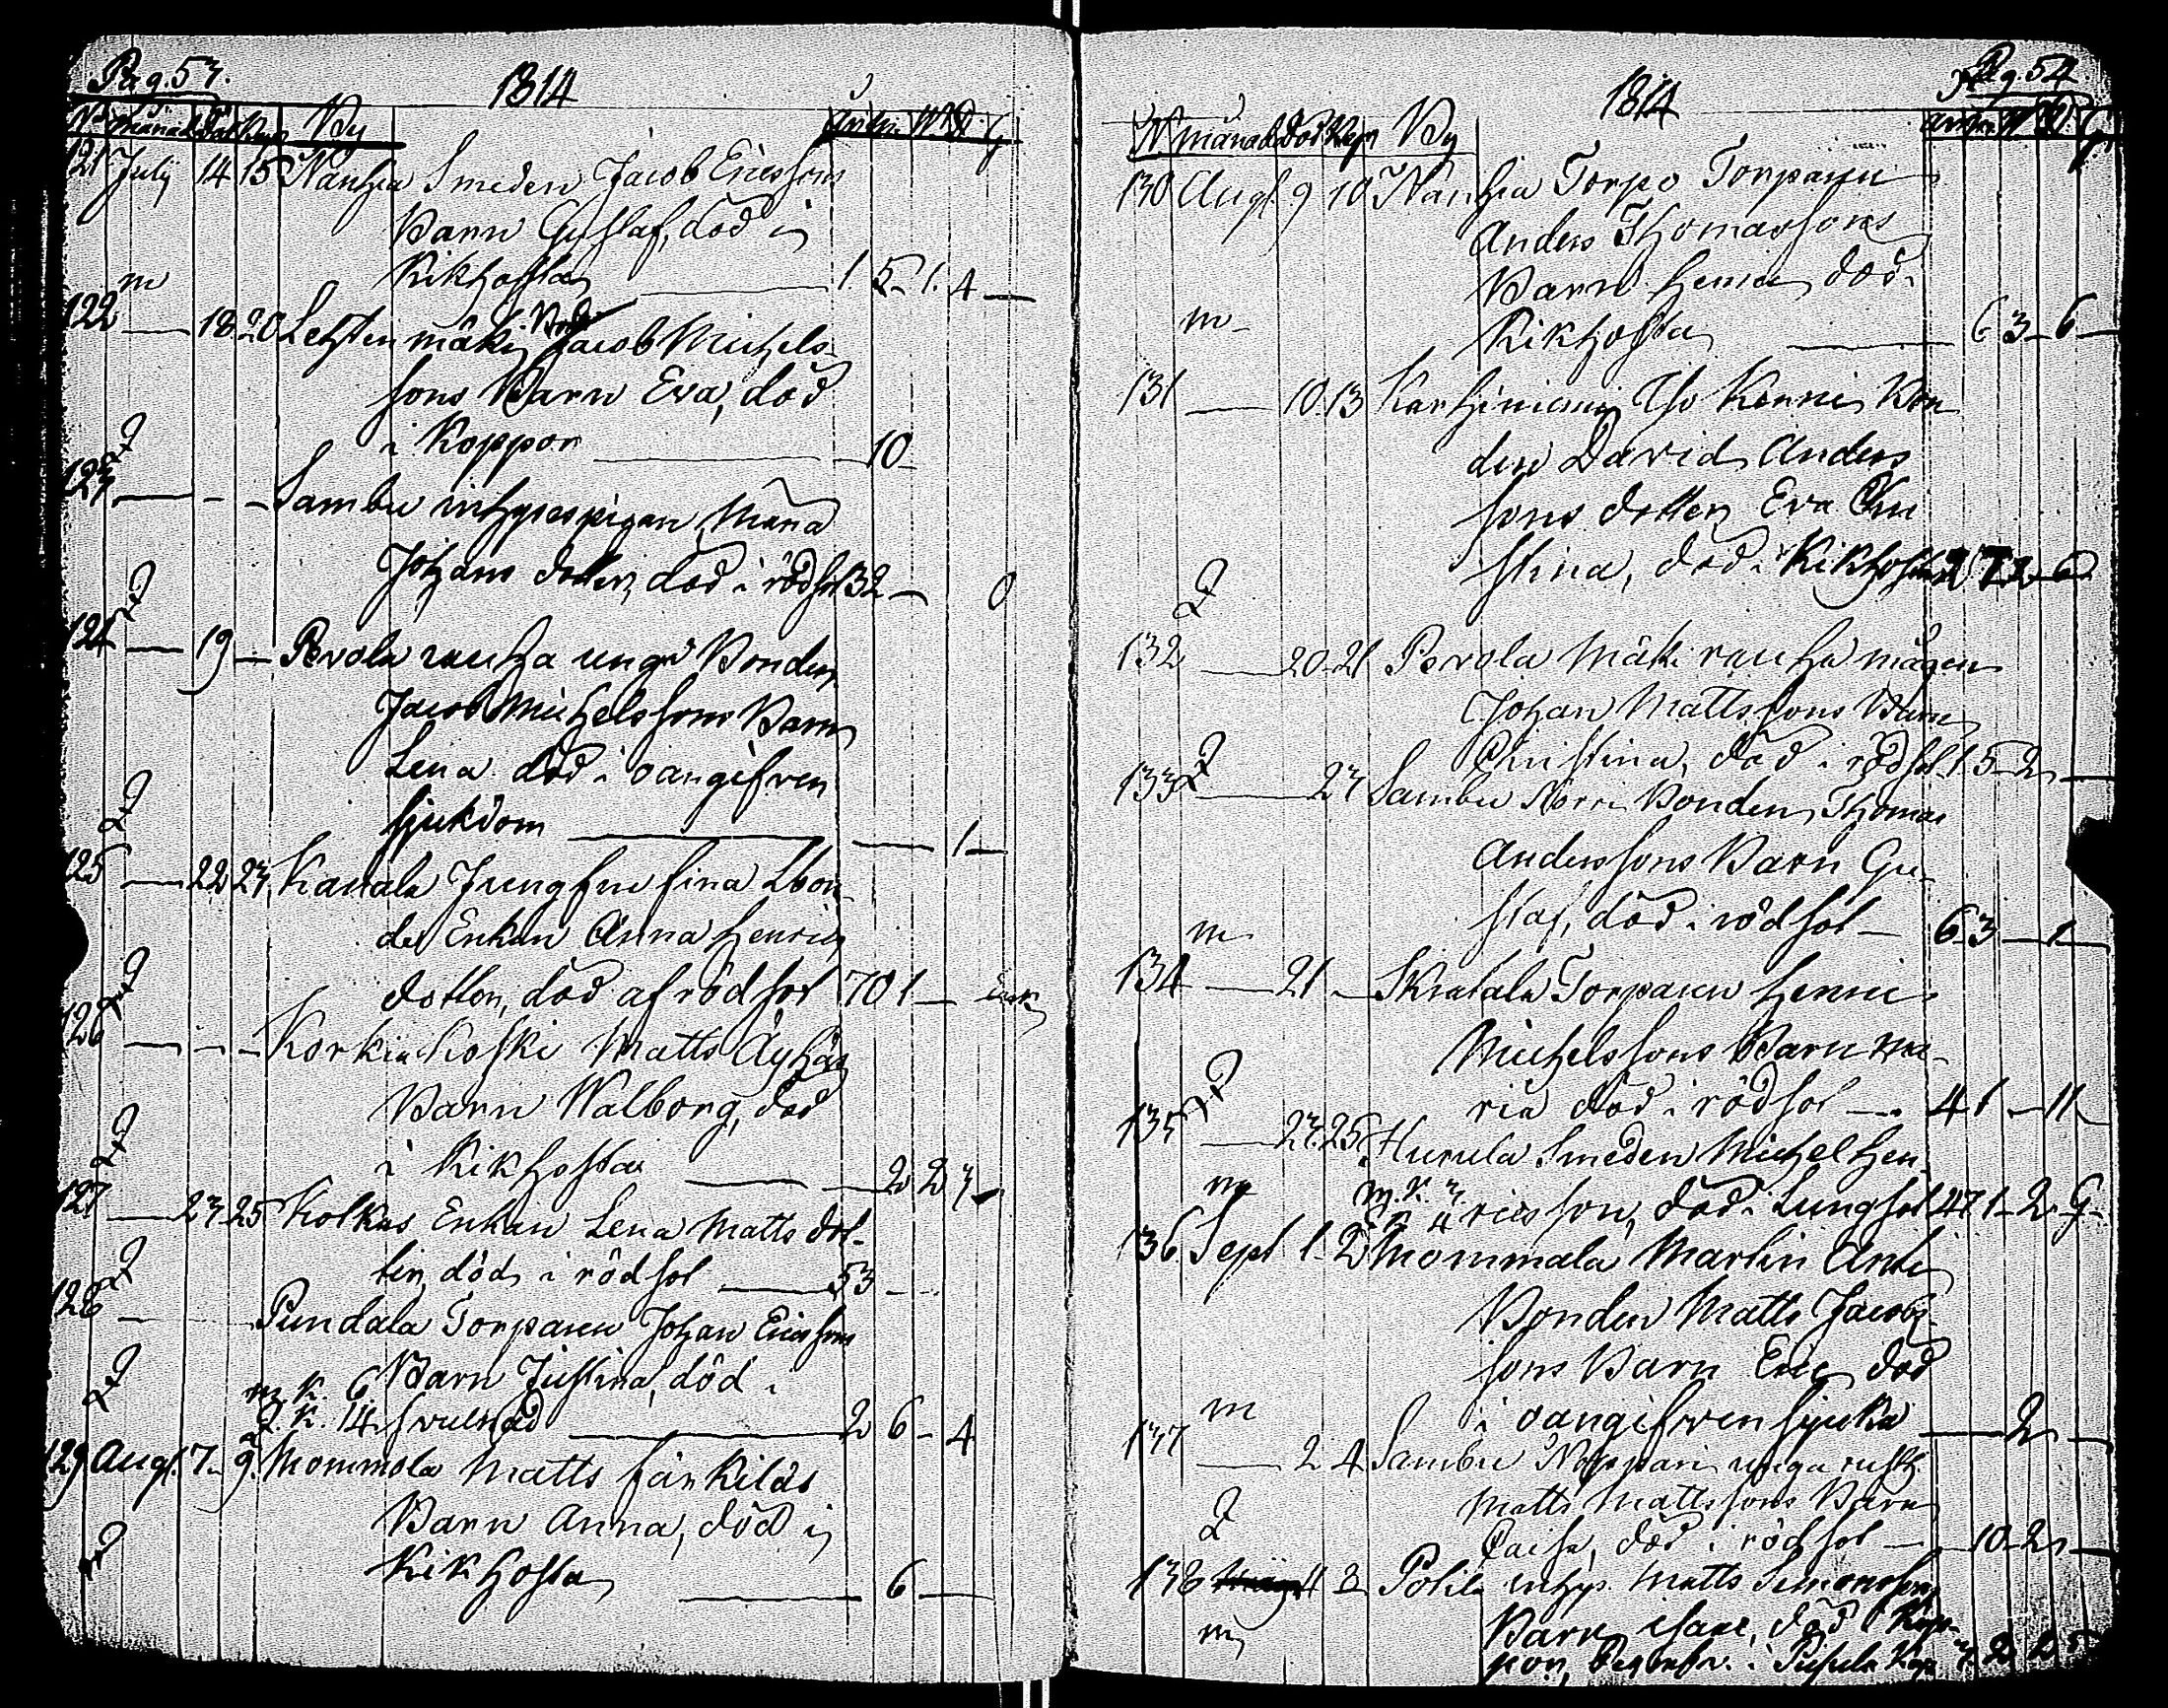 Pag. 53.
1814
No Månad Död Begr By
121 July 14 15 Nanhia Smeden Jacob Ericssons
Barn Gustaf, död i
Kikhosta 1 5 1. 4
m
122 18. 20 Lehtenmäki Bond Jacob Michels-
sons Barn Eva, död
i Koppor 10
Q
123 Sambu inhysespigan Maria
Johans dotter, död i rödsot 32
Q
124 19 Pervola rauha unga Bonden
Jacob Michelssons Barn
Lena död i oangifven
sjukdom 1
Q
125 22 23 Kanala Jungfru
des Enkan Anna Henrics
dotter, död af rödsot 70 1
Q
126 Korkiakoski Matts Äyhös
Barn Walborg, död
i Kikhosta 2 2 3
Q
127 23 25 Kolkas Enkan Lena Matts dot-
ter, död i rödsot 53
Q
128 Pundala Torparen Johan Ericssons
Barn Justina, död i
m. K. 6
Q. K. 14 svulnad 2 6 4
Q
129 Aug. 7. 9. Mommola Matts
Barn Anna, död i
Kikhosta 6
Q
Pag. 54
1814
N månad död Begr By
130 Augs. 9 10 Nanhia Torpo Torparen
Anders Thomassons
Barn Henric död i
m Kikhosta 6 3 6
131 10. 13 Karhiniemi Iso Kerri Bon
den David Anders
sons dotter Eva Chri
stina, död i Kikhosta 2 7 2 6
Q
132 20. 21 Pervola Mäki rauha mågen
Johan Mattssons Barn
Christina, död i rödsot 1 5 2
Q
133 23 Sambu Norri Bonden Thomas
Anderssons Barn Gu-
staf, död i rödsot 6 3 1
m
134 21 Skratala Torparen Henric
Michelssons Barn Ma-
ria död i rödsot 4 1 11
Q
135 23. 25. Hurula Smeden Michel Hen-
m m. K. 3
Q. K. 4 ricsson, död i Lungsot 47 1 2 G
136. Sept 1 2 Mommala Martin Anti
Bonden Matts Jacobs-
sons Barn Eric död
m i oangifven sjuka 2
137 2 4 Sambu Noppari unga rusth.
Matts Mattssons Barn
Q Caisa, död i rödsot 10 2
138 Pohila inhys. Matts Simonssons
Barn Isaac, död i Kop-
m por, Begrafv. i Pusula Kap. 3 2 2 5